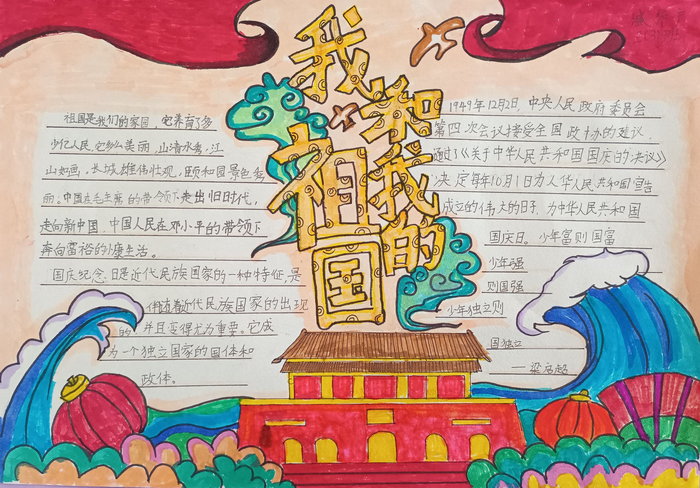 我和我的
祖国
祖国是我们的家园，它养育了多
少亿人民，它多么美丽，山清水秀，江
山如画，长城雄伟壮观，颐和园景色秀
丽。中国在毛主席的带领下走出旧时代，
走向新中国，中国人民在邓小平的带领下
奔向富裕的小康生活。
国庆纪念日是近代民族国家的一种特征，是
伴随着近代民族国家的出现
的，并且变得尤为重要。它成
为一个独立国家的国体和
政体。
1949年12月2日，中央人民政府委员会
第四次会议接受全国政协的建议，
通过了《关于中华人民共和国国庆的决议》
决定每年10月1日为人华人民共和国宣告
成立的伟大的日子，为中华人民共和国
国庆日。少年富则国富
少年强
则国强
少年独立则
国独立
——梁启超